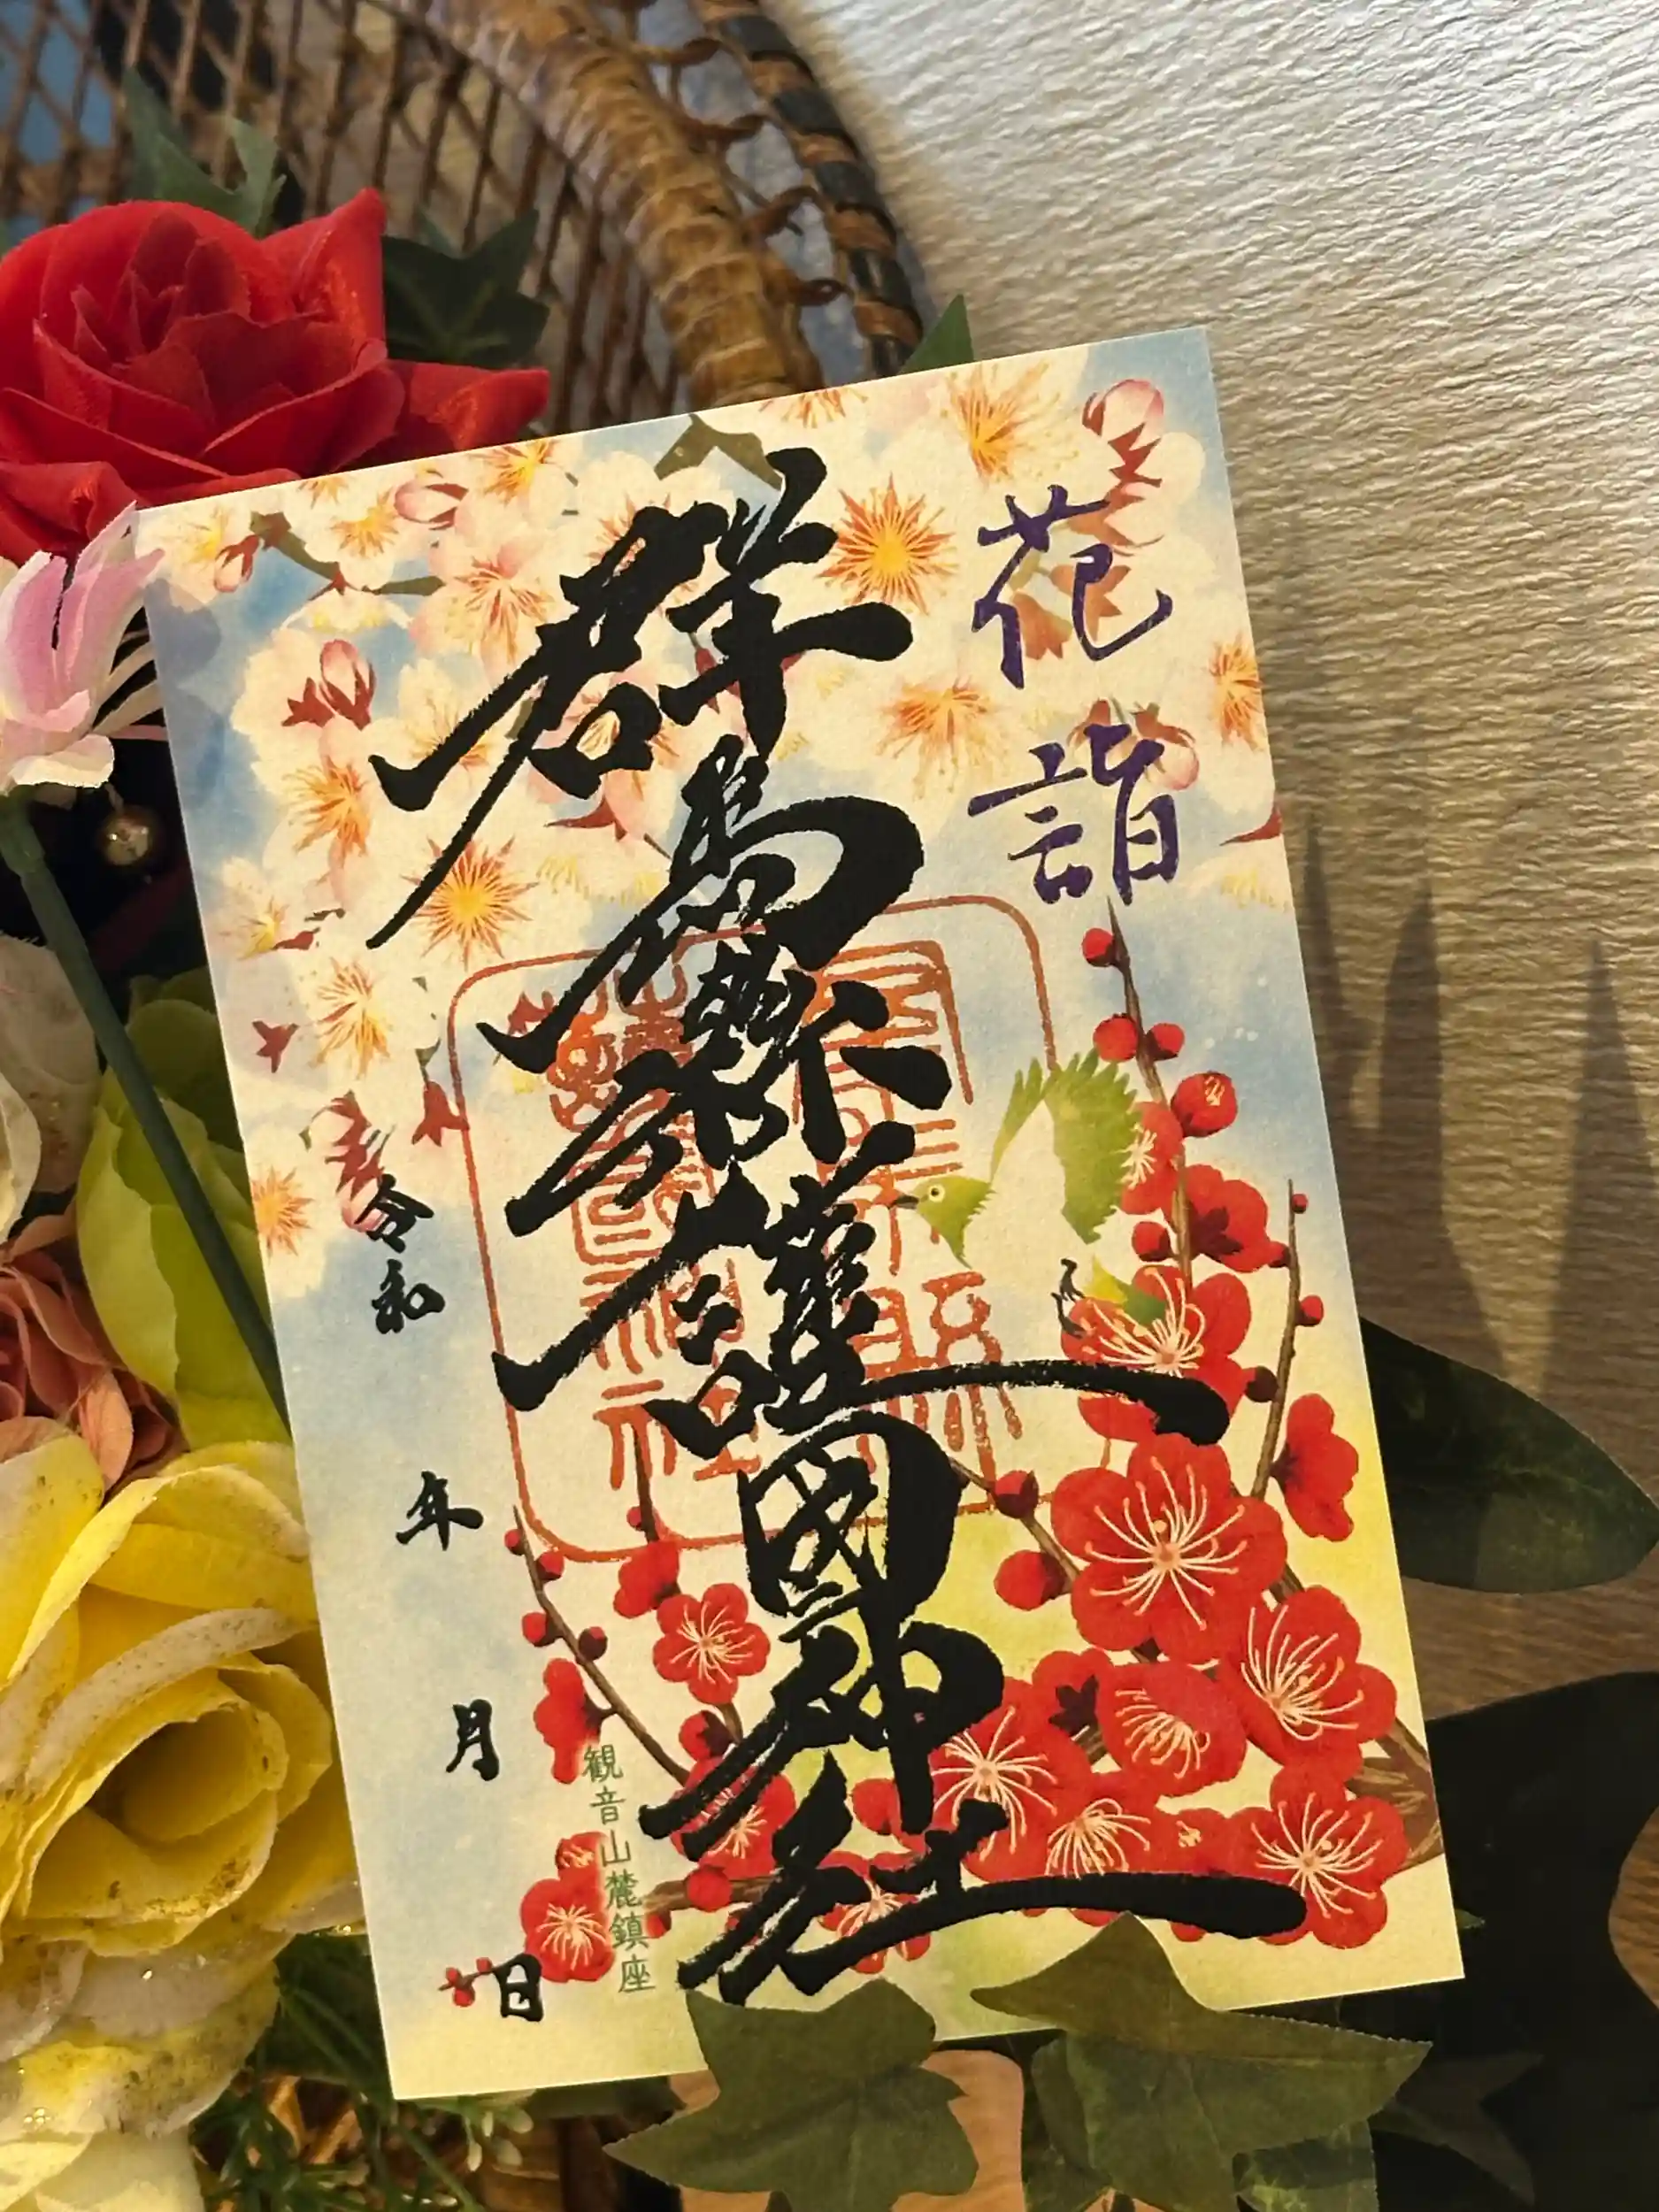 花詣
群馬縣護國神社
令和 年 月 日
観音山麓鎮座